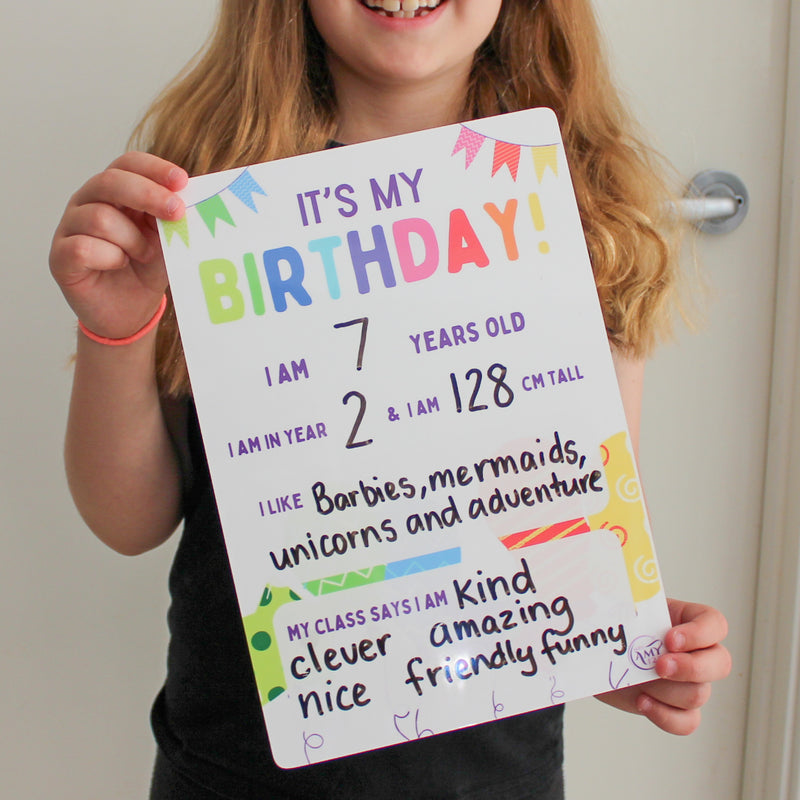 IT'S MY
BIRTHDAY!
I AM 7 YEARS OLD
I AM IN YEAR 2 & I AM 128 CM TALL
I LIKE Barbies, mermaids,
unicorns and adventure
MY CLASS SAYS I AM kind
clever amazing
nice friendly funny
AMY